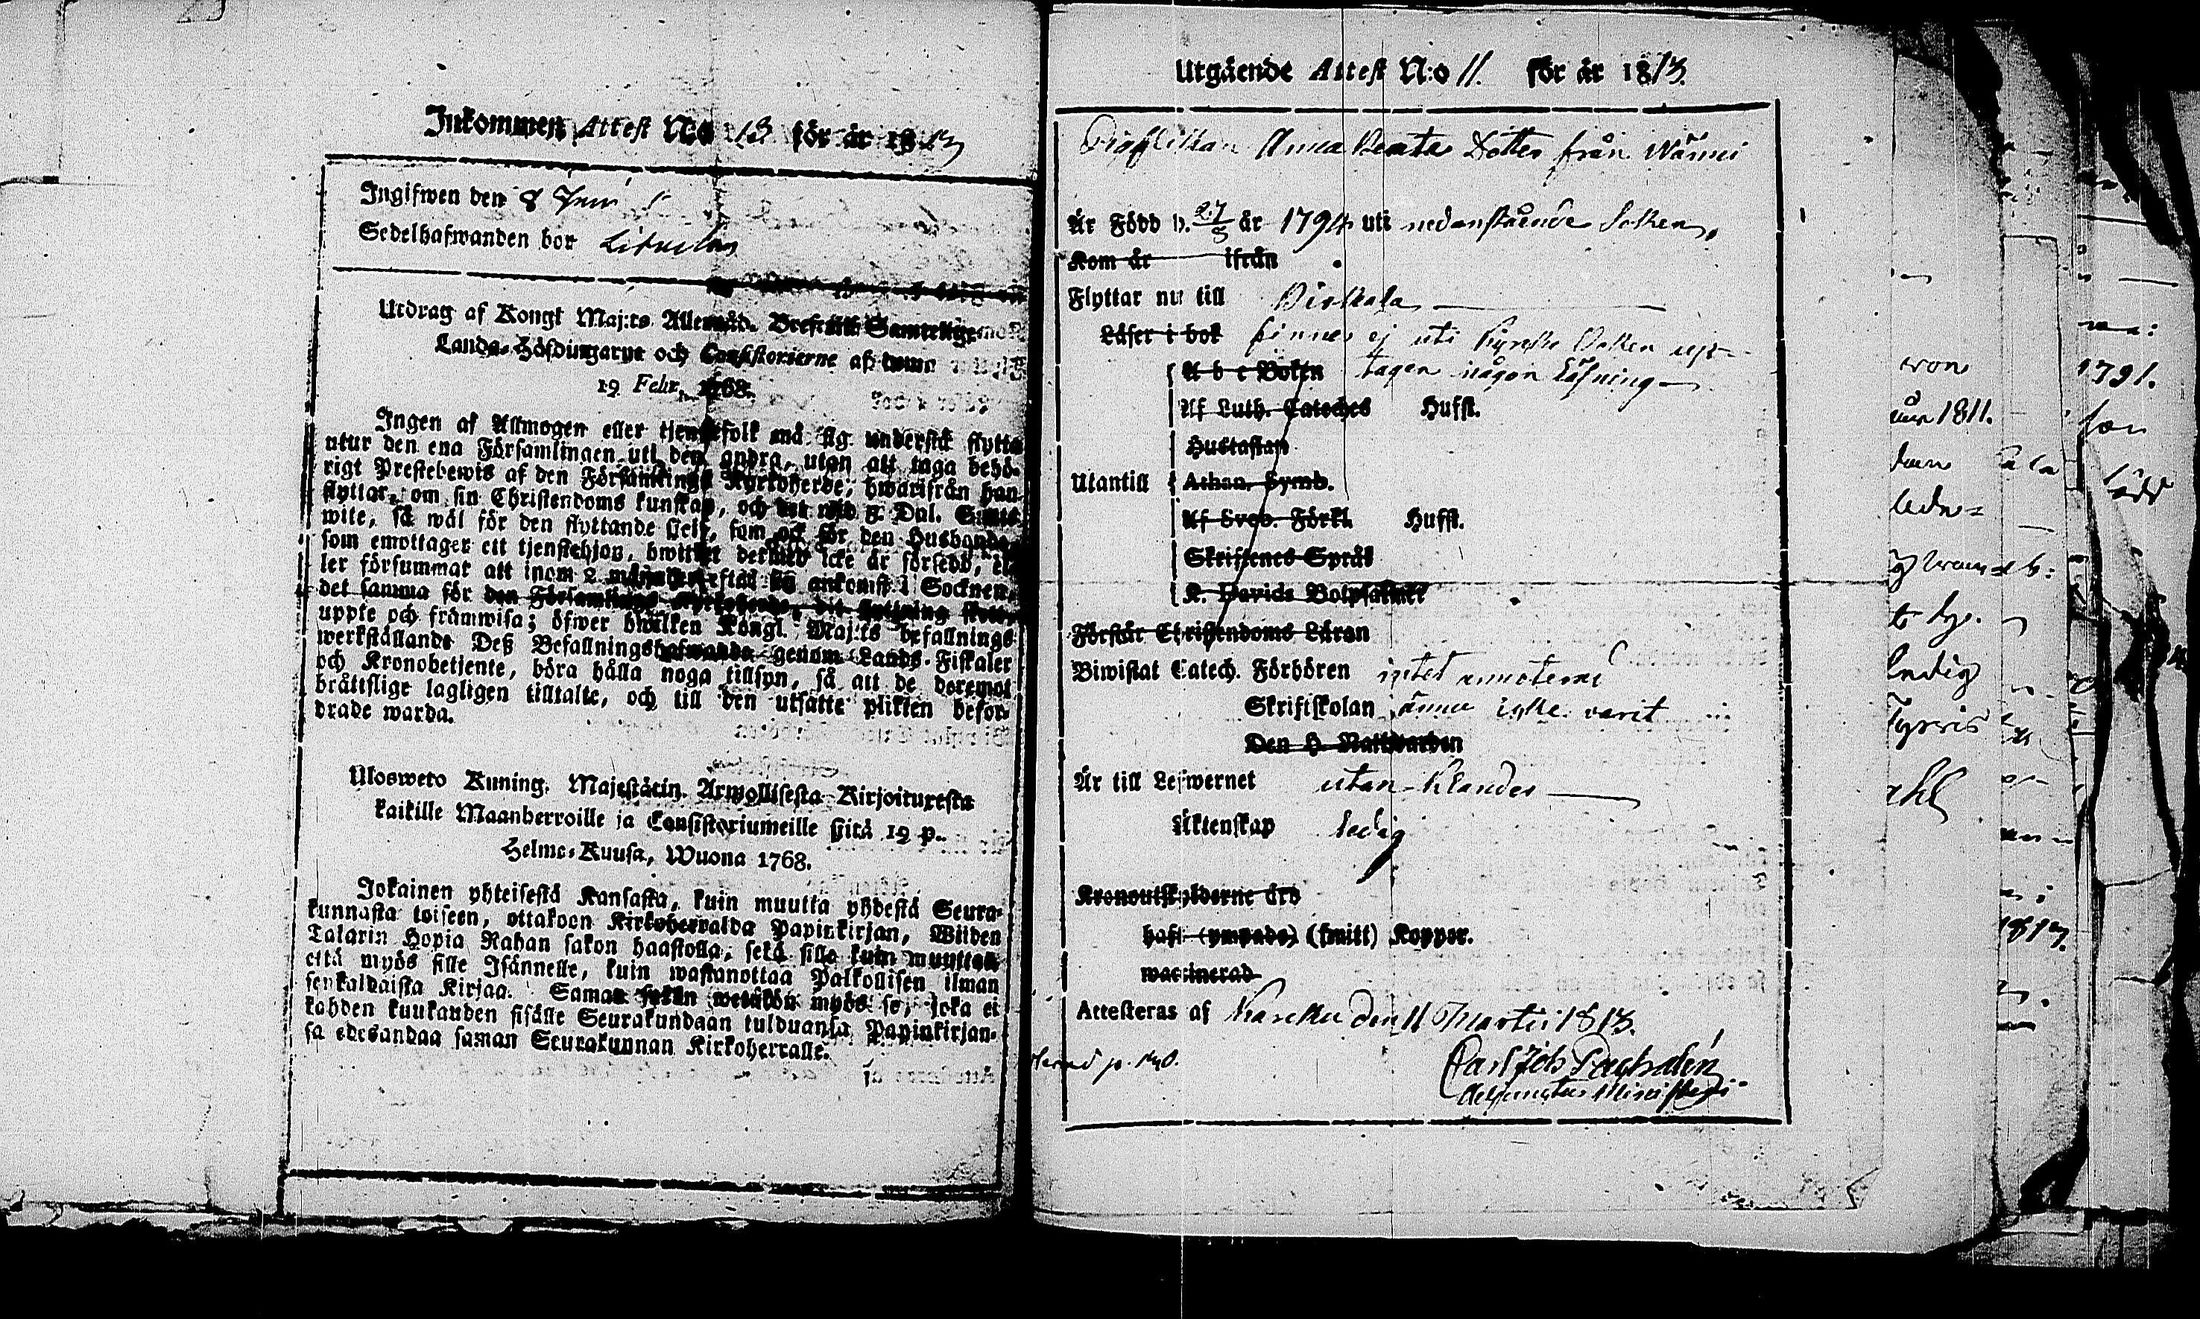 Inkommen Attest N:o 13 för år 1813
Ingifwen den 8 Juni
Sedelhafwanden bor
Utdrag af Kongl Maj:ts Allernåd. Bref till Samtelige
Lands-Höfdingarne och Consistorierne af den
19 Febr. 1768.
Ingen af Allmogen eller tjenstefolk må sig understå flytta
utur den ena Församlingen uti den andra, utan att taga behö-
rigt Prestebewis af den Församlings Kyrkoherde, hwarifrån han
flyttar, om sin Christendoms kunskap, och det wid 5 Dal. S:mts
wite, så wäl för den flyttande sielf, som ock för den Husbonde
som emottager ett tjenstehjon, hwilket dermed icke är försedd, el-
ler försummar att inom 2 månader efter sin ankomst i Socknen,
det samma för den Församlings Kyrkoherde, dit flyttning skett
uppte och främwisa; öfwer hwilken Kongl. Maj:ts befallnings
werkställande Deß Befallningshafwande genom Lands-Fiskaler
och Kronobetjente, böra hålla noga tillsyn, så att de deremot
bråttslige lagligen tilltalte, och till den utsatte plikten befor-
drade warda.
Ulosweto Kuning. Majestätin Armollisesta Kirjoituxesta
kaikille Maanherroille ja Consistoriumeille siitä 19 p.
Helme-Kuusa, Wuona 1768.
Jokainen yhteisestä Kansasta, kuin muutta yhdestä Seura-
kunnasta toiseen, ottakoon Kirkoherralda Papinkirjan, Wiiden
Talarin Hopia Rahan sakon haastolla, sekä sille kuin muuttaa
että myös sille Isännelle, kuin wastanottaa Palkollisen ilman
senkaldaista Kirjaa. Saman sakon wetäkön myös se, joka ei
kahden kuukauden sisälle Seurakundaan tulduansa Papinkirjan-
sa edesandaa saman Seurakunnan Kirkoherralle.
Utgående Attest N:o 11. för år 1813.
Pigflickan Anna Beata Dotter från Nänni
Är Född d. 27/5 år 1794 uti nedanstående Socken,
Kom år ifrån
Flyttar nu till Birkala
Läser i bok finnes ej uti Kyrcko Boken upp-
A b c Boken tagen någon Läsning
Af Luth. Cateches Hufst.
Hustaflan
Utantill Athan. Symb.
Af Sveb. Förkl. Hufst.
Skriftenes Språk
K. Davids Botpsalmer
Förstår Christendoms Läran
Biwistat Catech. Förhören intet annoteradt
Skriftskolan ännu icke varit
Den H. Nattvarden
Är till Lefwernet utan Klander
Äktenskap ledig
Kronoutskylderne års
haft (ympade) (smitt) Koppor.
waccinerad
Attesteras af Karcku den 11 Martii 1813.
p. 140.
Carl Joh
Adjunctus Ministerii